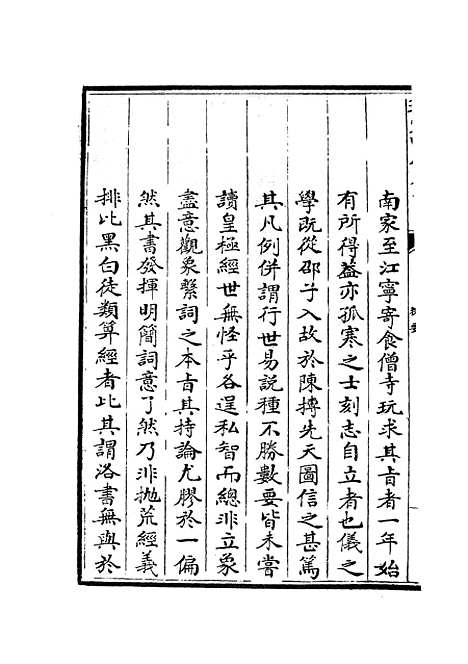 南家至江寧寄食僧寺玩求其㫖者一年始
有所得葢亦孤寒之士刻志自立者也儀之
學既從邵子入故於陳摶先天圖信之甚篤
其凡例併謂行世易説種不勝數要皆未嘗
讀皇極經世無怪乎各逞私智而總非立象
盡意觀象繫詞之本㫖其持論尤膠於一偏
然其書發揮明簡詞意了然乃非抛荒經義
排比黑白徒類算經者比其謂洛書無與於